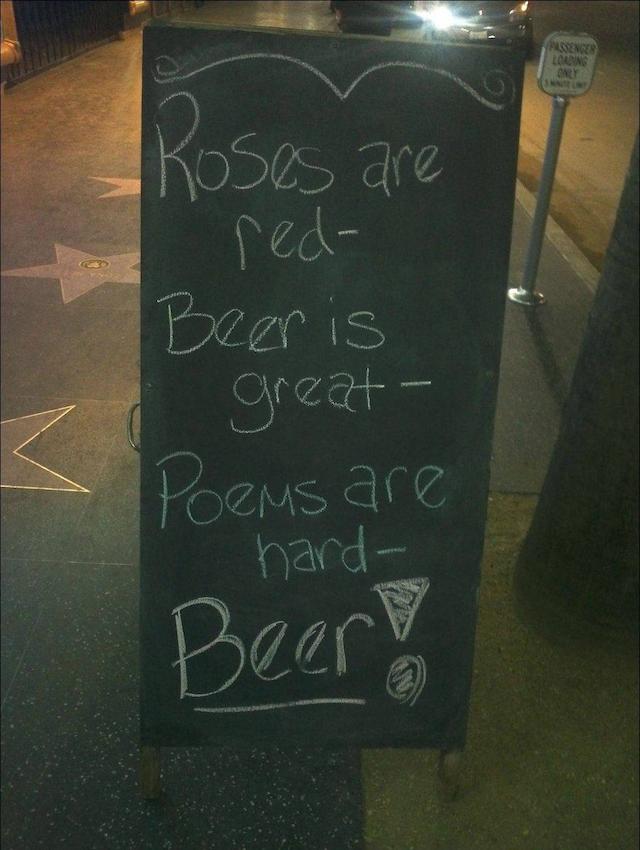 Roses are
red-
Beer is
great-
Poems are
hard-
Beer!
PASSENGER
LOADING
ONLY
5 MINUTE LIMIT